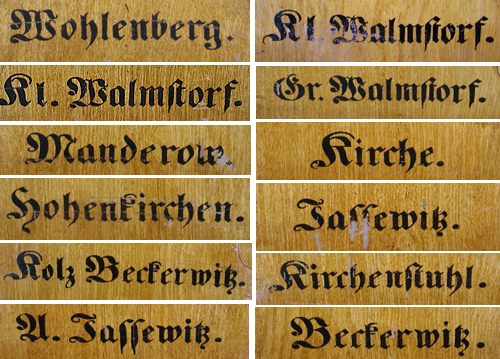 Wohlenberg.
Kl. Walmſtorf.
Manderow.
Hohenkirchen.
Kolz Beckerwitz.
A. Jaſſewitz.
Kl. Walmſtorf.
Gr. Walmſtorf.
Kirche.
Jaſſewitz.
Kirchenſtuhl.
Beckerwitz.